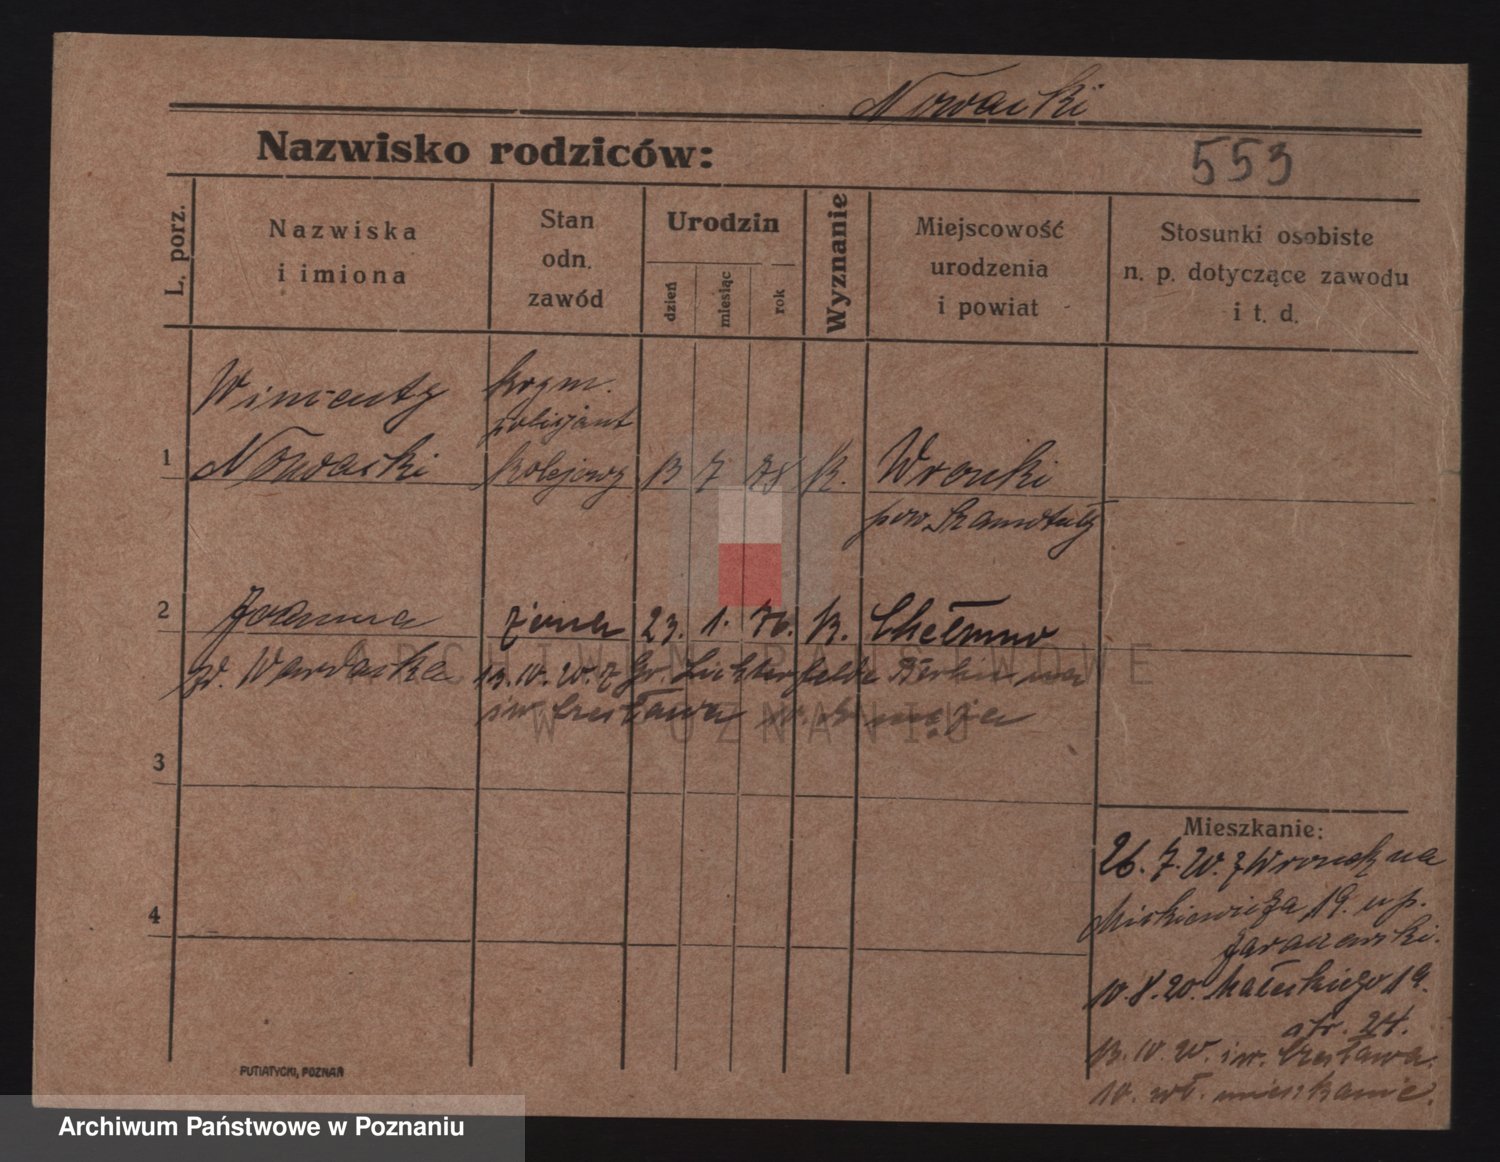 Nowacki
Nazwisko rodziców:
553
L. porz.
Nazwiska
i imiona
Stan
odn.
zawód
Urodzin
dzień
miesiąc
rok
Wyznanie
Miejscowość
urodzenia
i powiat
Stosunki osobiste
n. p. dotyczące zawodu
i t. d.
Wincenty
Krym.
policjant
1 Nowacki kolejowy 13 7 78 K. Wronki
pow. Szamotuły
2 Joanna żona 23. 1. 76. K. Chełmno
zd. 13. IV. 20. z Gr. Lichterfelde na
św. Czesława męża
3
4
Mieszkanie:
26. 7. 20. z Wronek na
19. u p.
Jaraczewski.
10. 8. 20. Małeckiego 19.
24.
św. Czesława
10. wł. mieszkanie.
PUTIATYCKI, POZNAŃ
ARCHIWUM PAŃSTWOWE
W POZNANIU
Archiwum Państwowe w Poznaniu